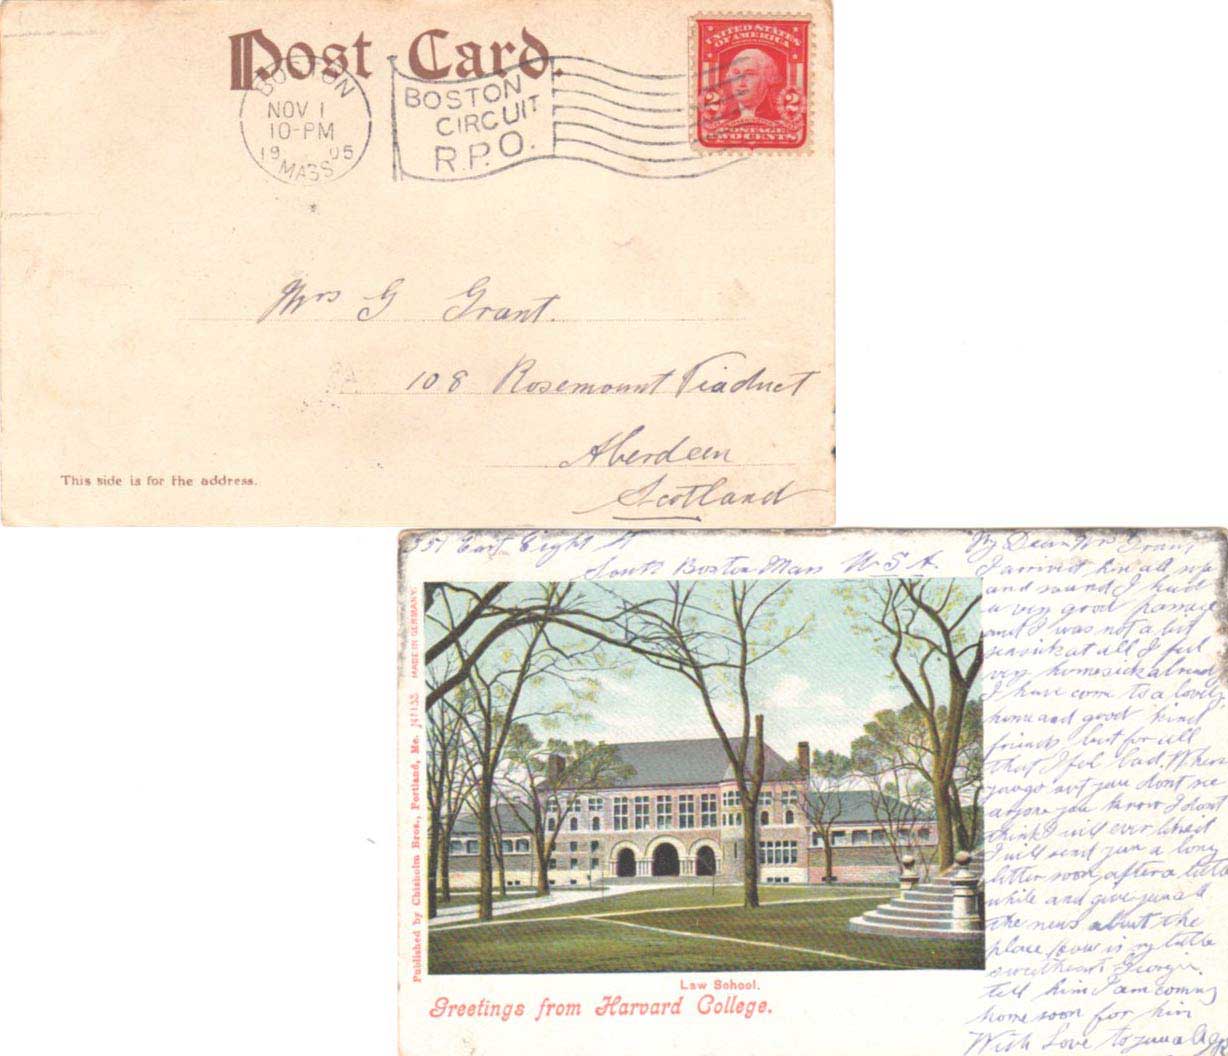 Post Card.
BOSTON
NOV 1
10-PM
19 05
MASS
BOSTON
CIRCUIT
R.P.O.
UNITED STATES
OF AMERICA
2 2
POSTAGE
TWO CENTS
Mrs G Grant.
108 Rosemount Viaduct
Aberdeen
Scotland
This side is for the address.
551 East Eight St
South Boston Mass U.S.A.
My Dear Mrs Grant,
I arrived here all safe
and sound I had
a very good passage
and I was not a bit
seasick at all I feel
very homesick already
I have come to a lovely
home and good kind
friends but for all
that I feel bad. When
you go out you dont see
anyone you know I dont
think I will ever
I will send you a long
letter soon after a little
while and give you all
the news about the
place how is my little
sweetheart Georgie
tell him I am coming
home soon for him
With Love to you all
Published by Chisholm Bros., Portland, Me. MADE IN GERMANY.
Law School.
Greetings from Harvard College.